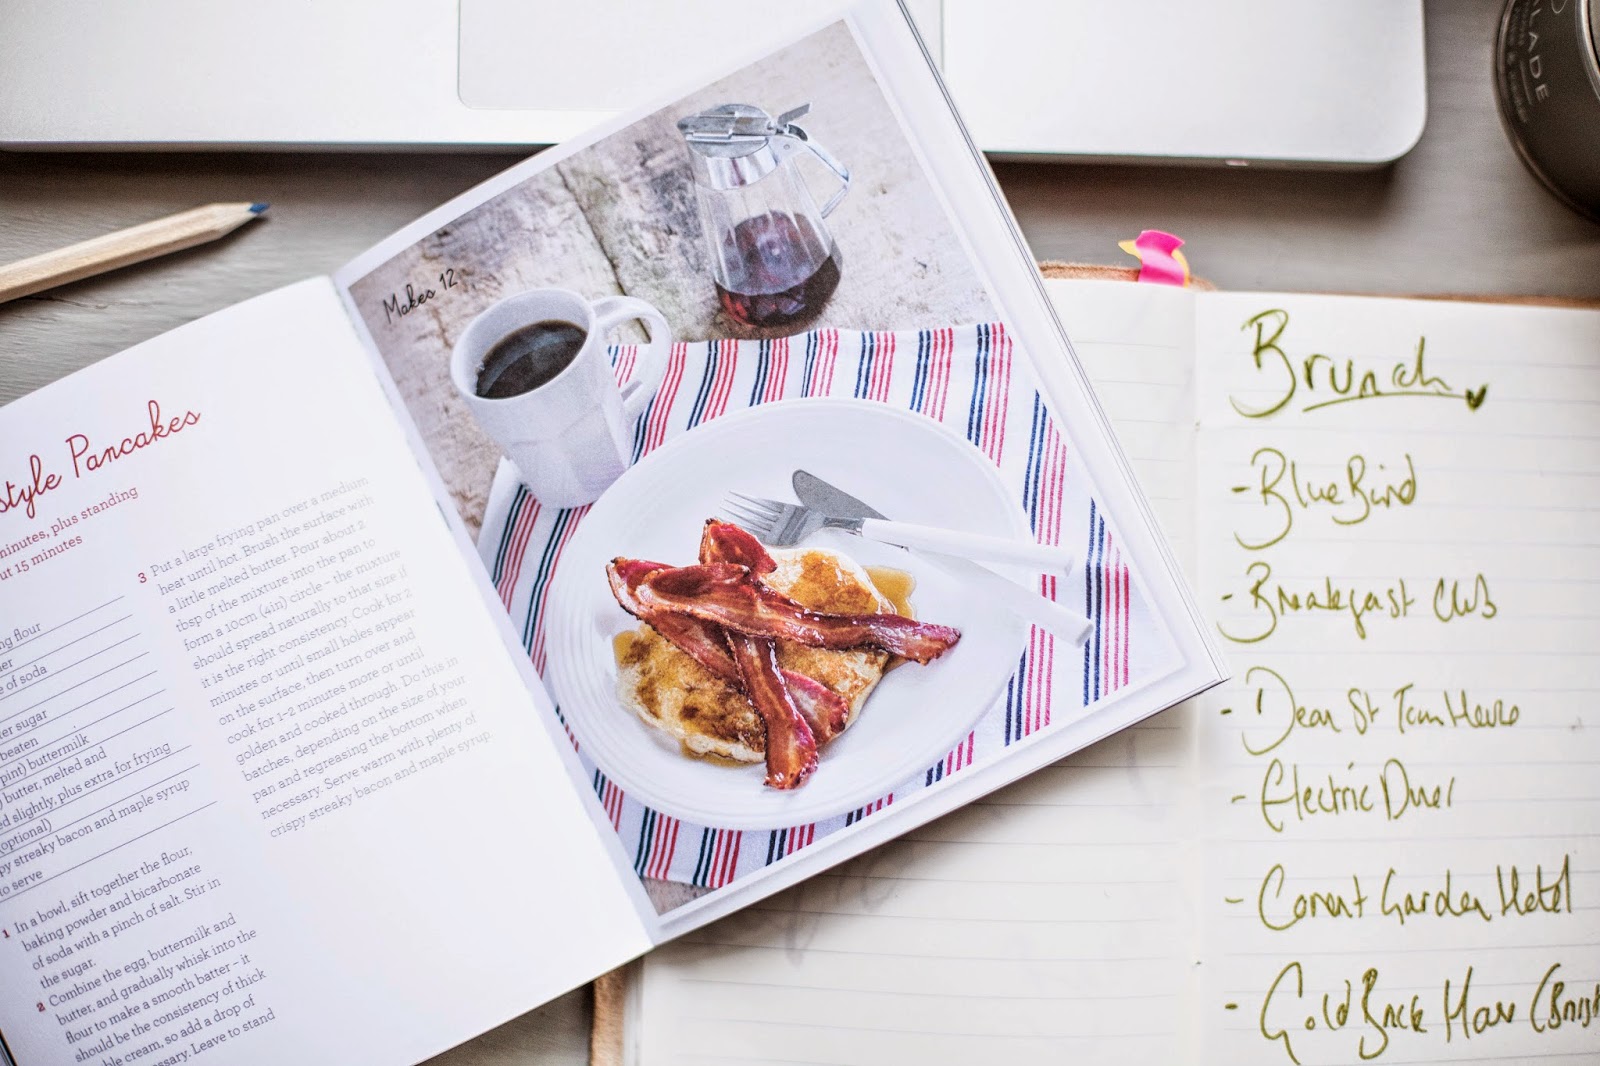 style Pancakes
minutes, plus standing
ut 15 minutes
ng flour
er
e of soda
er sugar
beaten
pint) buttermilk
) butter, melted and
ed slightly, plus extra for frying
(optional)
py streaky bacon and maple syrup
to serve
1 In a bowl, sift together the flour,
baking powder and bicarbonate
of soda with a pinch of salt. Stir in
the sugar.
2 Combine the egg, buttermilk and
butter, and gradually whisk into the
flour to make a smooth batter – it
should be the consistency of thick
ble cream, so add a drop of
essary. Leave to stand
3 Put a large frying pan over a medium
heat until hot. Brush the surface with
a little melted butter. Pour about 2
tbsp of the mixture into the pan to
form a 10cm (4in) circle – the mixture
should spread naturally to that size if
it is the right consistency. Cook for 2
minutes or until small holes appear
on the surface, then turn over and
cook for 1–2 minutes more or until
golden and cooked through. Do this in
batches, depending on the size of your
pan and regreasing the bottom when
necessary. Serve warm with plenty of
crispy streaky bacon and maple syrup.
Makes 12
Brunch
- BlueBird
- Breakfast Club
- Dean St Townhouse
- Electric Diner
- Covent Garden Hotel
- Gold Brick House
LADE